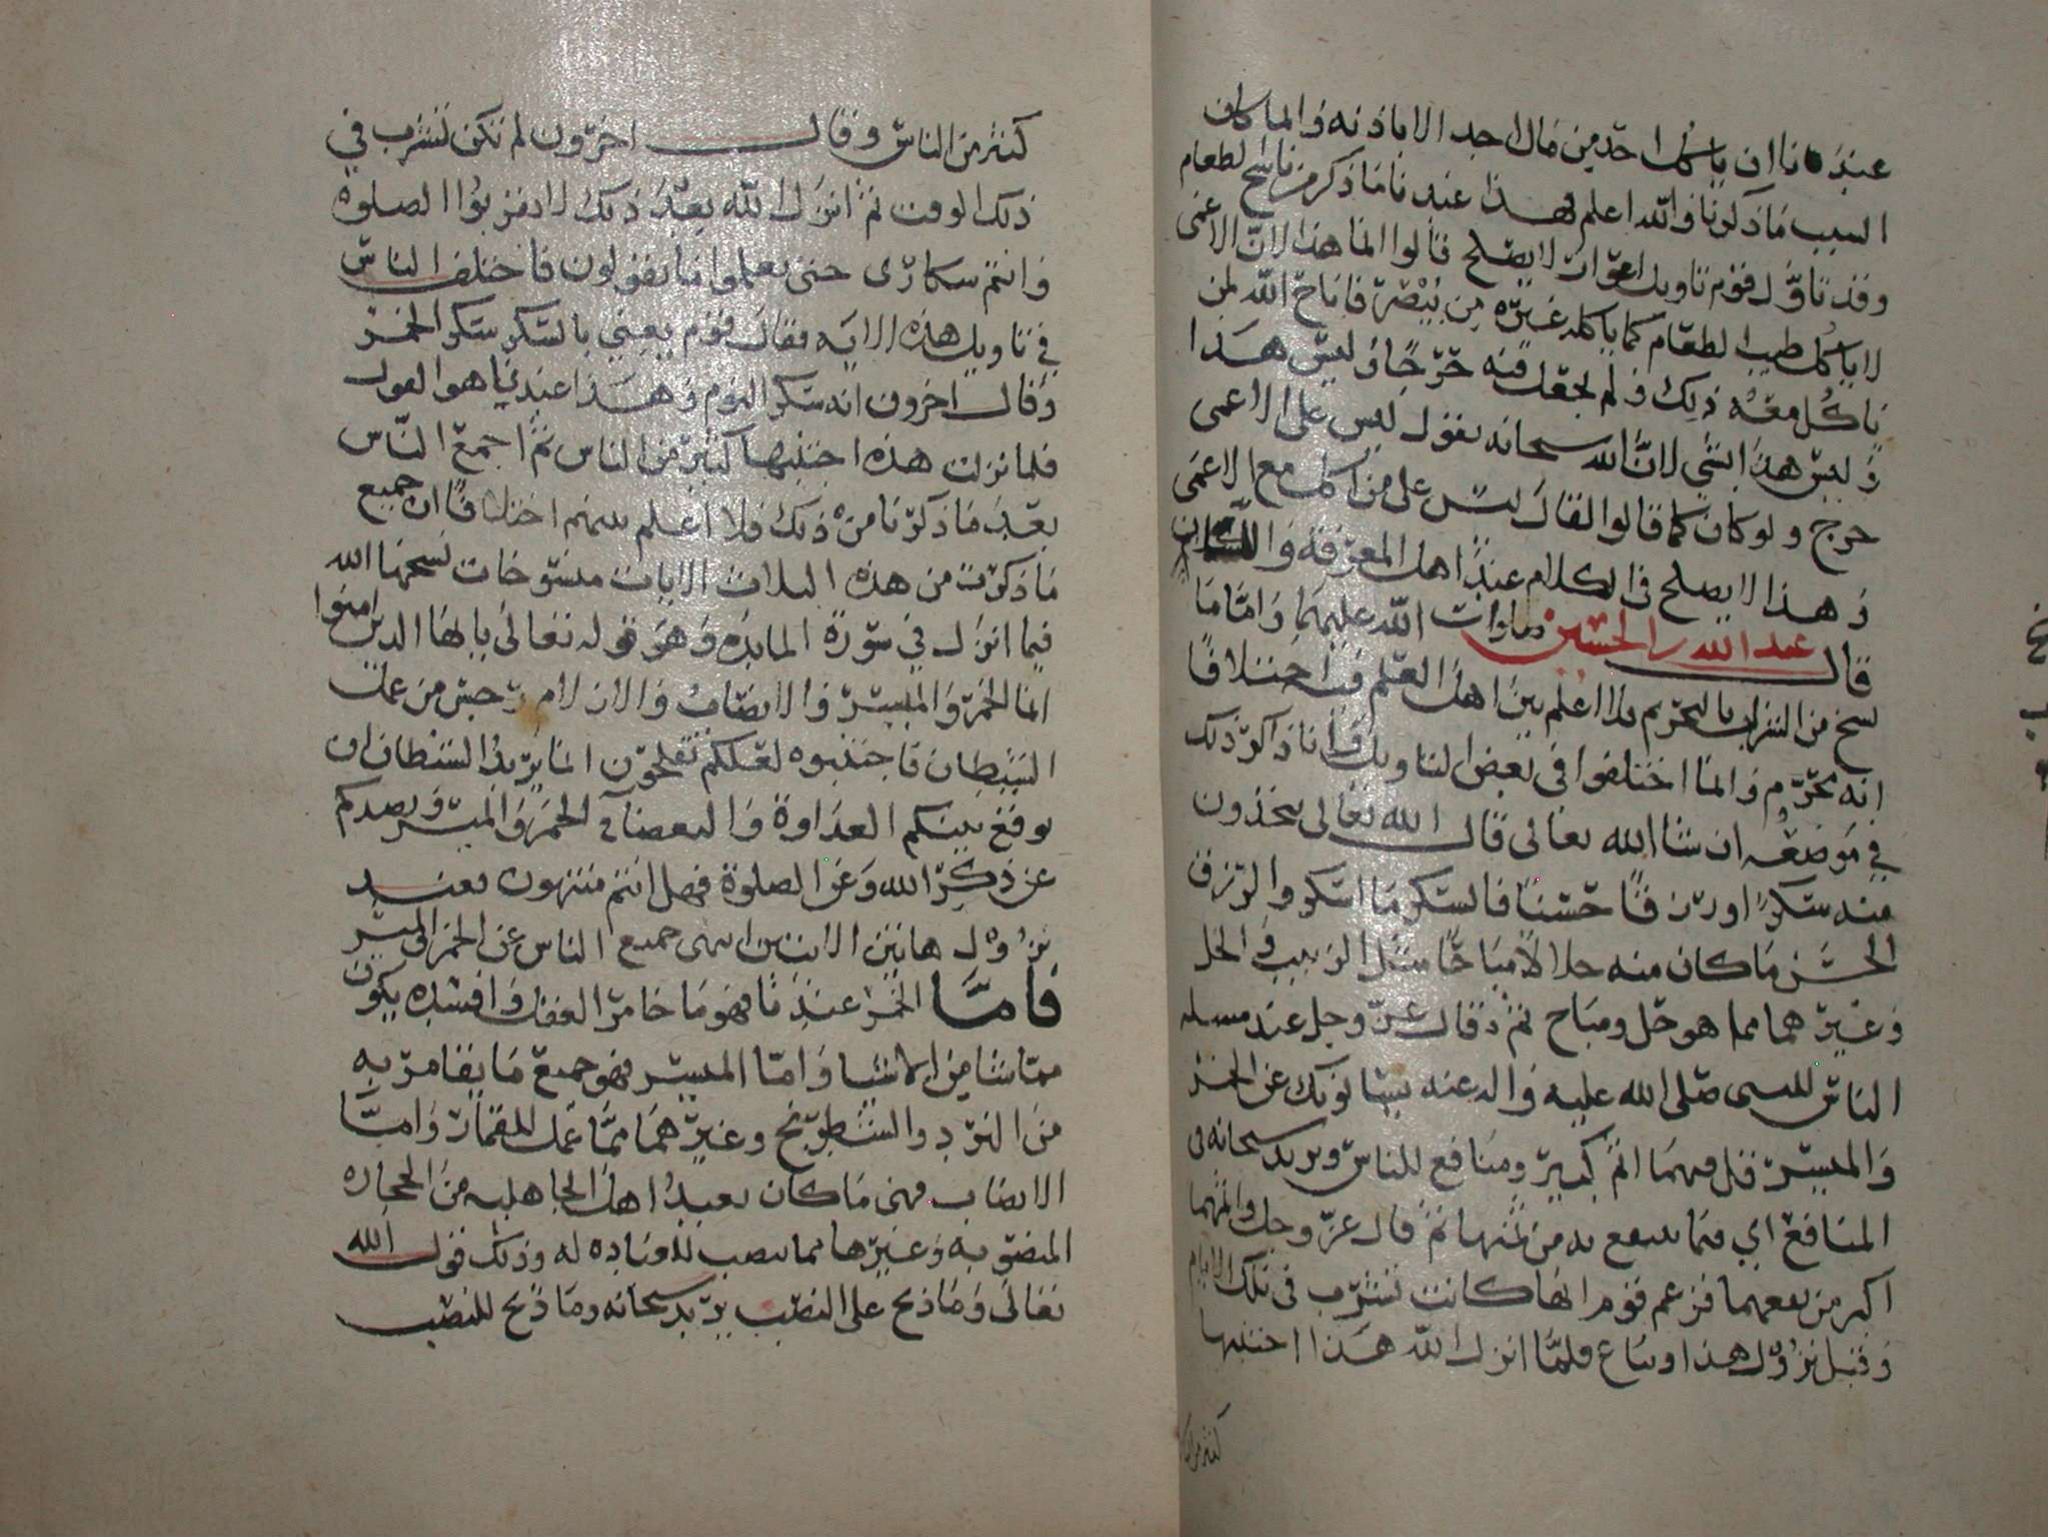 عندنا ان ياكل احد من مال احد الا باذنه وانما كان
السبب ما ذكرنا والله اعلم فهذا عندنا ما ذكر من ناسخ الطعام
وقد تاول قوم تاويل لا يصلح قالوا انما هذا لان الاعمى
لا ياكل طيب الطعام كما ياكله غيره من يبصره فاباح الله لمن
ياكل معه ذلك ولم يجعل فيه حرجا وليس هذا
وليس هذا بشي لان الله سبحانه يقول ليس على الاعمى
حرج ولو كان كما قالوا لقال ليس على من اكل مع الاعمى
وهذا لا يصلح في الكلام عند اهل المعرفة واللسان
قال عبد الله بن الحسين صلوات الله عليهما واما ما
نسخ من الشراب بالتحريم فلا اعلم بين اهل العلم فيه اختلافا
انه محرم وانما اختلفوا في بعض التاويل وانا ذاكر ذلك
في موضعه ان شا الله تعالى قال الله تعالى تتخذون
منه سكرا ورزقا حسنا فالسكر ما اسكر والرزق
الحسن ما كان منه حلالا مباحا مثل الزبيب والخل
وغيرهما مما هو حل ومباح ثم قال عز وجل عند مسله
الناس للنبي صلى الله عليه واله عنه يسالونك عن الخمر
والميسر قل فيهما اثم كبير ومنافع للناس ويريد سبحانه في
المنافع اي فيما ينتفع به من ثمنها ثم قال عز وجل واثمهما
اكبر من نفعهما فزعم قوم انها كانت تشرب في تلك الايام
وقبل نزول هذا وتباع فلما انزل الله هذا اجتنبها
كثير من الناس
كثير من الناس وقال اخرون لم تكن تشرب في
ذلك الوقت ثم انزل الله بعد ذلك لا تقربوا الصلوة
وانتم سكارى حتى تعلموا ما تقولون فاختلف الناس
في تاويل هذه الايه فقال قوم يعني بالسكر سكر الخمر
وقال اخرون انه سكر النوم وهذا عندنا هو القول
فلما نزلت هذه اجتنبها كثير من الناس ثم اجمع الناس
بعد ما ذكرنا من ذلك فلا اعلم بينهم اختلافا ان جميع
ما ذكرت من هذه الثلاث الايات منسوخات نسخها الله
فيما انزل في سورة المايده وهو قوله تعالى يا ايها الذين امنوا
انما الخمر والميسر والانصاب والازلام رجس من عمل
الشيطان فاجتنبوه لعلكم تفلحون انما يريد الشيطان ان
يوقع بينكم العداوة والبغضا في الخمر والميسر ويصدكم
عن ذكر الله وعن الصلوة فهل انتم منتهون فعند
نزول هاتين الايتين انتهى جميع الناس عن الخمر والميسر
فاما الخمر عندنا فهو ما خامر العقل وافسده يكون
مما شا من الاشيا واما الميسر فهو جميع ما يقامر به
من النرد والشطرنج وغيرهما مما عمل للقمار واما
الانصاب فهي ما كان يعبد اهل الجاهليه من الحجاره
المنصوبه وغيرها مما ينصب للعباده له وذلك قول الله
تعالى وما ذبح على النصب يريد سبحانه وما ذبح للنصب